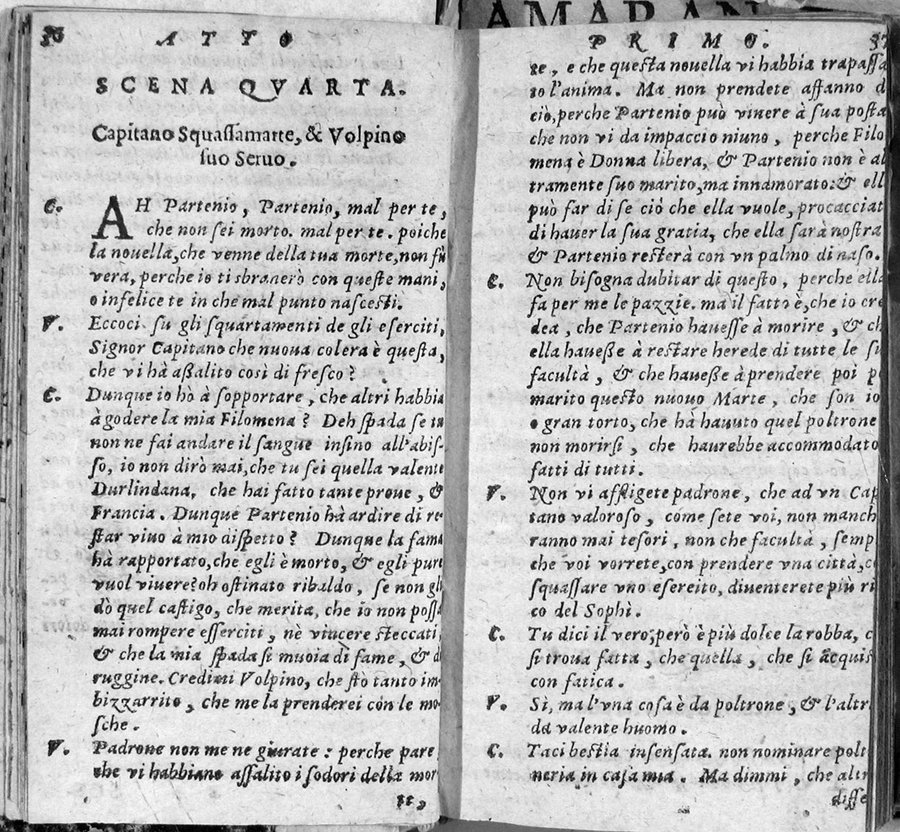 AMARAN
ATTO
SCENA QVARTA.
Capitano Squassamarte, & Volpino
suo Seruo.
C. AH Partenio, Partenio, mal per te,
che non sei morto. mal per te. poiche
la nouella, che venne della tua morte, non fù
vera, perche io ti sbranerò con queste mani,
o infelice te in che mal punto nascesti.
V. Eccoci su gli squartamenti de gli eserciti,
Signor Capitano che nuoua colera è questa,
che vi hà assalito così di fresco?
C. Dunque io hò à sopportare, che altri habbia
à godere la mia Filomena? Deh spada se tu
non ne fai andare il sangue insino all'abis-
so, io non dirò mai, che tu sei quella valente
Durlindana, che hai fatto tante proue, &
Francia. Dunque Partenio hà ardire di re
star viuo à mio dispetto? Dunque la fama
hà rapportato, che egli è morto, & egli pure
vuol viuere? oh ostinato ribaldo, se non gli
dò quel castigo, che merita, che io non possa
mai rompere esserciti, nè vincere steccati,
& che la mia spada si muoia di fame, & di
ruggine. Credimi Volpino, che stò tanto im
bizzarrito, che me la prenderei con le mo
sche.
V. Padrone non me ne giurate: perche pare
che vi habbiano assalito i sodori della mor
te,
PRIMO. 37
te, e che questa nouella vi habbia trapassa
to l'anima. Ma non prendete affanno d
ciò, perche Partenio può viuere à sua posta
che non vi da impaccio niuno, perche Filo
mena è Donna libera, & Partenio non è al
tramente suo marito, ma innamorato: & ell
può far di se ciò che ella vuole, procacciat
di hauer la sua gratia, che ella sarà nostra
& Partenio resterà con vn palmo di naso.
C. Non bisogna dubitar di questo, perche ella
fa per me le pazzie. ma il fatto è, che io cre
dea, che Partenio hauesse à morire, & ch
ella hauesse à restare herede di tutte le su
facultà, & che hauesse à prendere poi p
marito questo nuouo Marte, che son io
o gran torto, che hà hauuto quel poltrone
non morirsi, che haurebbe accommodato
fatti di tutti.
V. Non vi affligete padrone, che ad vn Cap
tano valoroso, come sete voi, non manch
ranno mai tesori, non che facultà, semp
che voi vorrete, con prendere vna città, o
squassare vno esercito, diuenterete più ri
co del Sophì.
C. Tu dici il vero; però è più dolce la robba, c
si troua fatta, che quella, che si acquis
con fatica.
V. Sì, ma l'vna cosa è da poltrone, & l'altr
da valente huomo.
C. Taci bestia insensata. non nominare polt
neria in casa mia. Ma dimmi, che altr
disse